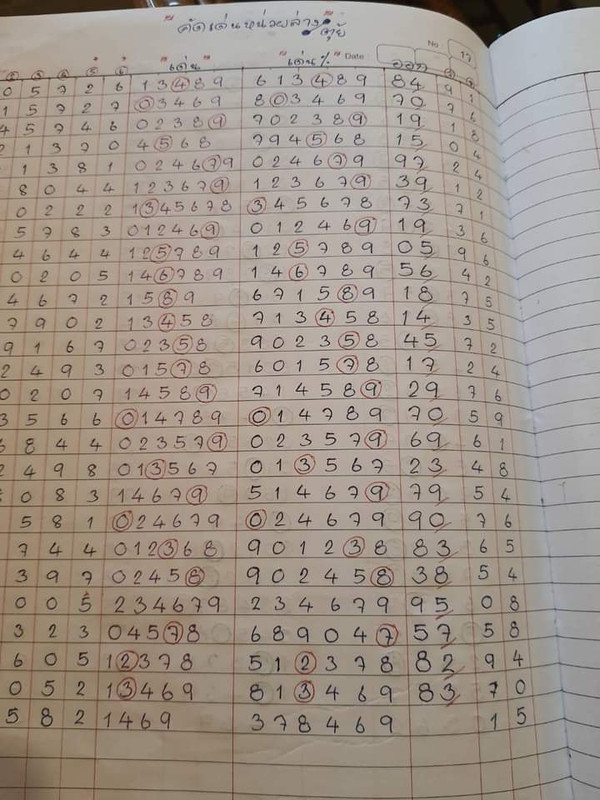 "คัดเด่นหน่วยล่าง" ตุ้ย
No. 17
"เด่น" "เด่น %" Date ออก
0 5 7 2 6 13489 6 1 3 4 8 9 84 9 1
1 5 7 2 7 03469 8 0 3 4 6 9 70 7 6
4 5 7 4 6 02389 7 0 2 3 8 9 19 1 8
2 1 3 7 0 4568 7 9 4 5 6 8 15 0 4
1 3 8 1 024679 0 2 4 6 7 9 97 2 4
8 0 4 4 123679 1 2 3 6 7 9 39 1 2
0 2 2 2 1345678 3 4 5 6 7 8 73 7 1
5 7 8 3 012469 0 1 2 4 6 9 19 3 6
4 6 4 4 125789 1 2 5 7 8 9 05 9 6
0 2 0 5 146789 1 4 6 7 8 9 56 4 2
4 6 7 2 1589 6 7 1 5 8 9 18 7 5
7 9 0 2 13458 7 1 3 4 5 8 14 3 5
9 1 6 7 02358 9 0 2 3 5 8 45 7 2
2 4 9 3 01578 6 0 1 5 7 8 17 2 4
0 2 0 7 14589 7 1 4 5 8 9 29 7 6
3 5 6 6 014789 0 1 4 7 8 9 70 5 9
8 4 4 023579 0 2 3 5 7 9 69 6 1
2 4 9 8 013567 0 1 3 5 6 7 23 4 8
0 8 3 14679 5 1 4 6 7 9 79 5 4
5 8 1 024679 0 2 4 6 7 9 90 7 6
7 4 4 012368 9 0 1 2 3 8 83 6 5
3 9 7 02458 9 0 2 4 5 8 38 5 4
0 0 5 234679 2 3 4 6 7 9 95 0 8
3 2 3 04578 6 8 9 0 4 7 57 5 8
6 0 5 12378 5 1 2 3 7 8 82 9 4
0 5 2 13469 8 1 3 4 6 9 83 7 0
5 8 2 1469 3 7 8 4 6 9 1 5